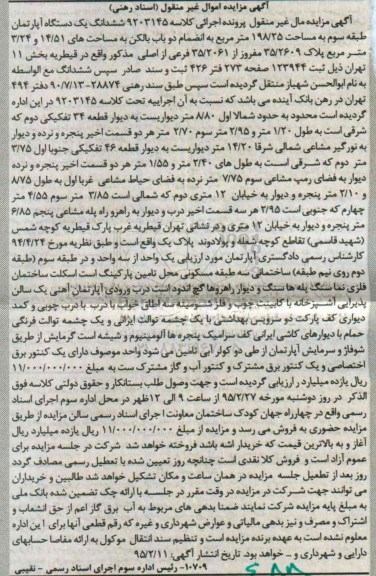 آگهی مزایده اموال غیر منقول (اسناد رهنی)
آگهی مزایده مال غیر منقول پرونده اجرائی کلاسه ۹۲۰۳۱۴۵ ششدانگ یک دستگاه آپارتمان
طبقه سوم به مساحت ۱۹۸/۲۵ متر مربع به انضمام دو باب بالکن به مساحت های ۱۴/۵۱ و ۳/۲۴
متر مربع پلاک ۳۵/۲۶۰۹ مفروز از ۳۵/۲۰۶۱ فرعی از اصلی مذکور واقع در قیطریه بخش ۱۱
تهران ذیل ثبت ۱۲۳۹۴۴ صفحه ۲۷۳ دفتر ۴۲۶ ثبت و سند صادر سپس ششدانگ مع الواسطه
به نام ابوالحسن شهباز منتقل گردیده است سپس طبق سند رهنی ۲۸۸۷۴-۹۰/۷/۱۳ دفتر ۴۹۴
تهران در رهن بانک آینده می باشد که نسبت به آن اجراییه تحت کلاسه ۹۲۰۳۱۴۵ در این اداره
گردیده است محدود به حدود شمالا اول ۸/۸۰ متر دیواریست به دیوار قطعه ۳۴ تفکیکی دوم که
شرقی است به طول ۱/۲۰ متر و ۲/۹۵ متر سوم ۲/۷۰ متر هر دو قسمت اخیر پنجره و نرده و دیوار
به نورگیر مشاعی شمالی شرقا ۱۴/۲۰ متر دیواریست به دیوار قطعه ۴۶ تفکیکی جنوبا اول ۳/۷۵
متر دوم که شرقی است به طول های ۲/۴۰ متر و ۱/۵۵ متر هر دو قسمت اخیر پنجره و نرده
دیوار به فضای رمپ مشاعی سوم ۷/۷۵ متر نرده به فضای حیاط مشاعی غربا اول به طول ۸/۷۵
و ۲/۱۰ متر پنجره و دیوار به خیابان ۱۲ متری دوم که شمالی است ۳/۸۵ متر سوم ۴/۵۵ متر
چهارم که جنوبی است ۲/۹۵ متر هر سه قسمت اخیر درب و دیوار به راهرو راه پله مشاعی پنجم ۶/۸۵
متر پنجره و دیوار به خیابان ۱۲ متری و در نشانی تهران قیطریه غرب پارک قیطریه کوچه شمس
(شهید قاسمی) تقاطع کوچه شمله و پولادوند پلاک یک واقع است و طبق نظریه مورخ ۹۴/۴/۲۴
کارشناس رسمی دادگستری آپارتمان مورد ارزیابی یک واحد از سه واحد و در طبقه سوم (طبقه
دوم روی نیم طبقه) ساختمانی سه طبقه مسکونی محل تامین پارکینگ است اسکلت ساختمان
فلزی نما سنگ پله ها سنگ و دیوار راهروها گچ اندود است درب ورودی آپارتمان آهنی یک سالن
پذیرایی آشپزخانه با کابینت چوب و فلز سه اطاق خواب با درب چوبی و کمد
دیواری کف پارکت دو سرویس بهداشتی با یک چشمه توالت ایرانی و یک چشمه توالت فرنگی
حمام با دیوارهای کاشی ایرانی کف سرامیک پنجره ها آلومینیوم و شیشه است گرمایش از طریق
شوفاژ و سرمایش آپارتمان از طی دو کولر آبی تامین می شود واحد موصوف دارای یک کنتور برق
اختصاصی و یک کنتور برق مشترک و کنتور آب و گاز مشترک ست به مبلغ ۱۱/۰۰۰/۰۰۰/۰۰۰
ریال یازده میلیارد ارزیابی گردیده است و جهت وصول طلب بستانکار و حقوق دولتی کلاسه فوق
الذکر در روز دوشنبه مورخه ۹۵/۲/۲۷ از ساعت ۹ الی ۱۲ ظهر در محل اداره سوم اجرای اسناد
رسمی واقع در چهارراه جهان کودک ساختمان معاونت اجرای اسناد رسمی سالن مزایده از طریق
مزایده حضوری به فروش می رسد و مزایده از مبلغ ۱۱/۰۰۰/۰۰۰/۰۰۰ ریال یازده میلیارد ریال
آغاز و به بالاترین قیمت که خریدار باشد فروخته خواهد شد شرکت در جلسه مزایده برای
عموم آزاد است و فروش کلا نقدی است چنانچه روز تعیین شده با تعطیل رسمی مصادف گردد
روز بعد از تعطیل جلسه مزایده در همان ساعت و مکان تشکیل خواهد شد طالبین و خریداران
می توانند جهت شرکت در مزایده در وقت مقرر در جلسه با ارائه چک تضمین شده بانک ملی
به مبلغ پایه مزایده شرکت نمایند ضمنا بدهی های مربوط به آب برق گاز اعم از حق انشعاب و
اشتراک و مصرف و نیز بدهی مالیاتی و عوارض شهرداری و غیره که رقم قطعی آنها برای این اداره
معلوم نشده است به عهده برنده مزایده است و تنظیم سند انتقال موکول به ارائه مفاصا حسابهای
دارایی و شهرداری و ... خواهد بود. تاریخ انتشار آگهی: ۹۵/۲/۱۱
۱۰۷۰۹- رئیس اداره سوم اجرای اسناد رسمی - نقیبی